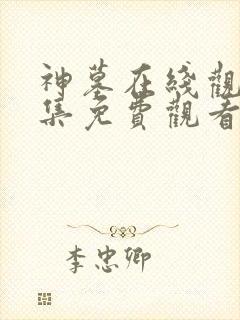 神墓在线觀
集免費觀看
李忠卿